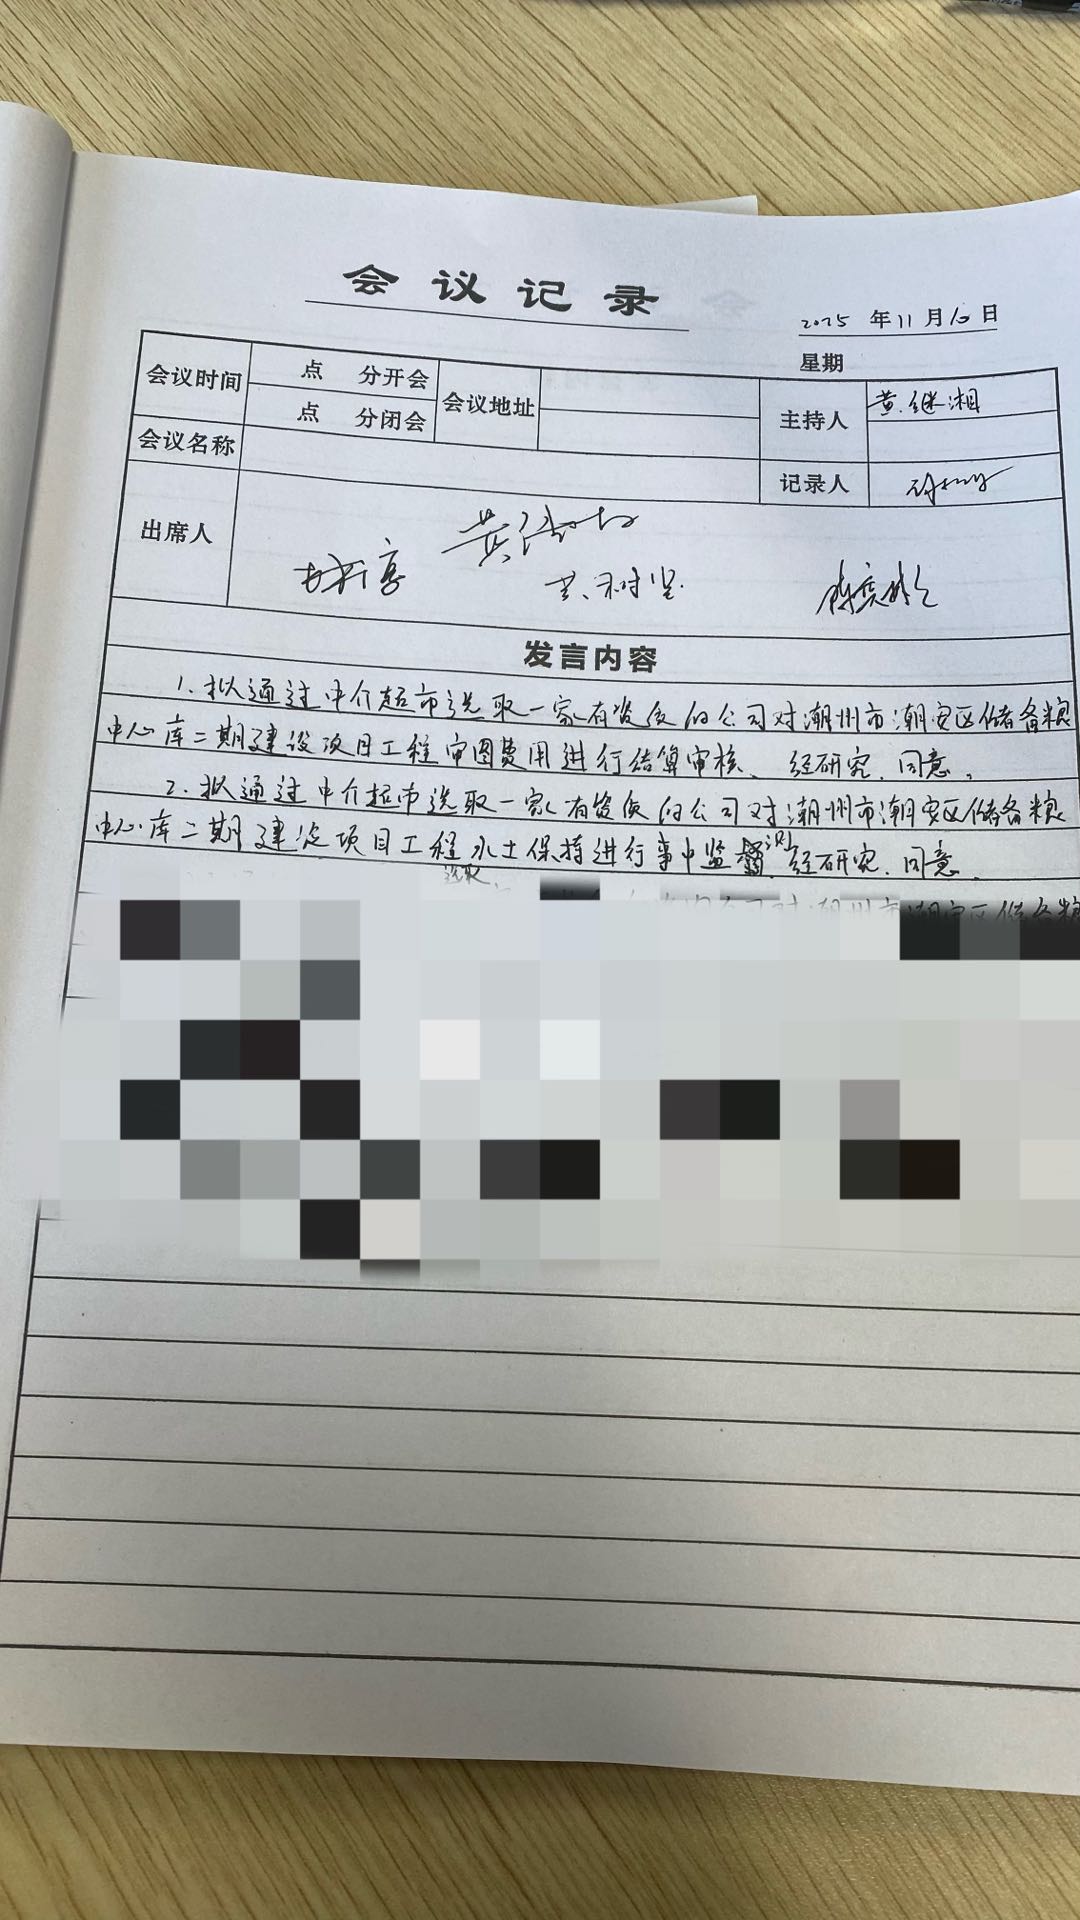 会议记录
2025 年 11 月 10 日
星期
会议时间 点 分开会 会议地址 主持人 黄继湘
点 分闭会
会议名称 记录人
出席人
黄树坚
发言内容
1.拟通过中介超市选取一家有资质的公司对潮州市潮安区储备粮
中心库二期建设项目工程审图费用进行结算审核、经研究.同意。
2.拟通过中介超市选取一家有资质的公司对潮州市潮安区储备粮
中心库二期建设项目工程水土保持进行事中监测.经研究.同意。
选取
公司对潮州市潮安区储备粮